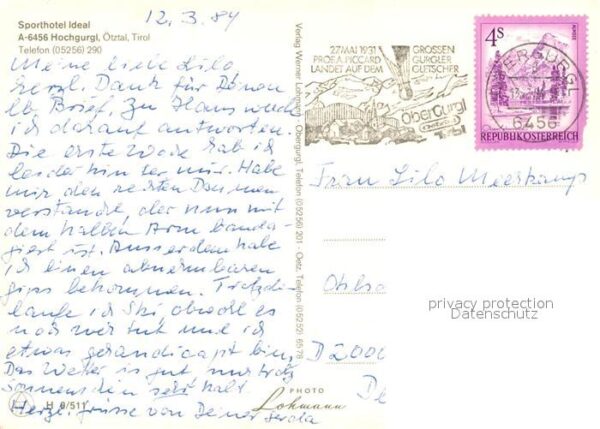 Sporthotel Ideal
A-6456 Hochgurgl, Ötztal, Tirol
Telefon (05256) 290
12.3.84
Meine liebe Lilo
herzl. Dank für Deinen
lb Brief. Zu Hause werde
ich darauf antworten.
Die erste Woche hab ich
leider hinter mir. Habe
mir den rechten Daumen
verstaucht, der nun mit
dem halben Arm banda-
giert ist. Ausserdem habe
ich einen abnehmbaren
gips bekommen. Trotzdem
laufe ich Ski obwohl es
noch weh tut und ich
etwas gehandicapt bin,
Das Wetter ist gut trotz
Sonnenschein sehr kalt
Herzl. Grüsse von Deiner
H 9/511
Verlag Werner Lohmann, Obergurgl, Telefon (05256) 201 - Oetz, Telefon (05252) 65 78
PHOTO
Lohmann
27.MAI 1931
PROF.A.PICCARD
LANDET AUF DEM
GROSSEN
GURGLER
GLETSCHER
OberGurgl
Tirol
OBERGURGL
6456
4S
REPUBLIK ÖSTERREICH
Frau Lilo Meerkamp
D 2000
privacy protection
Datenschutz